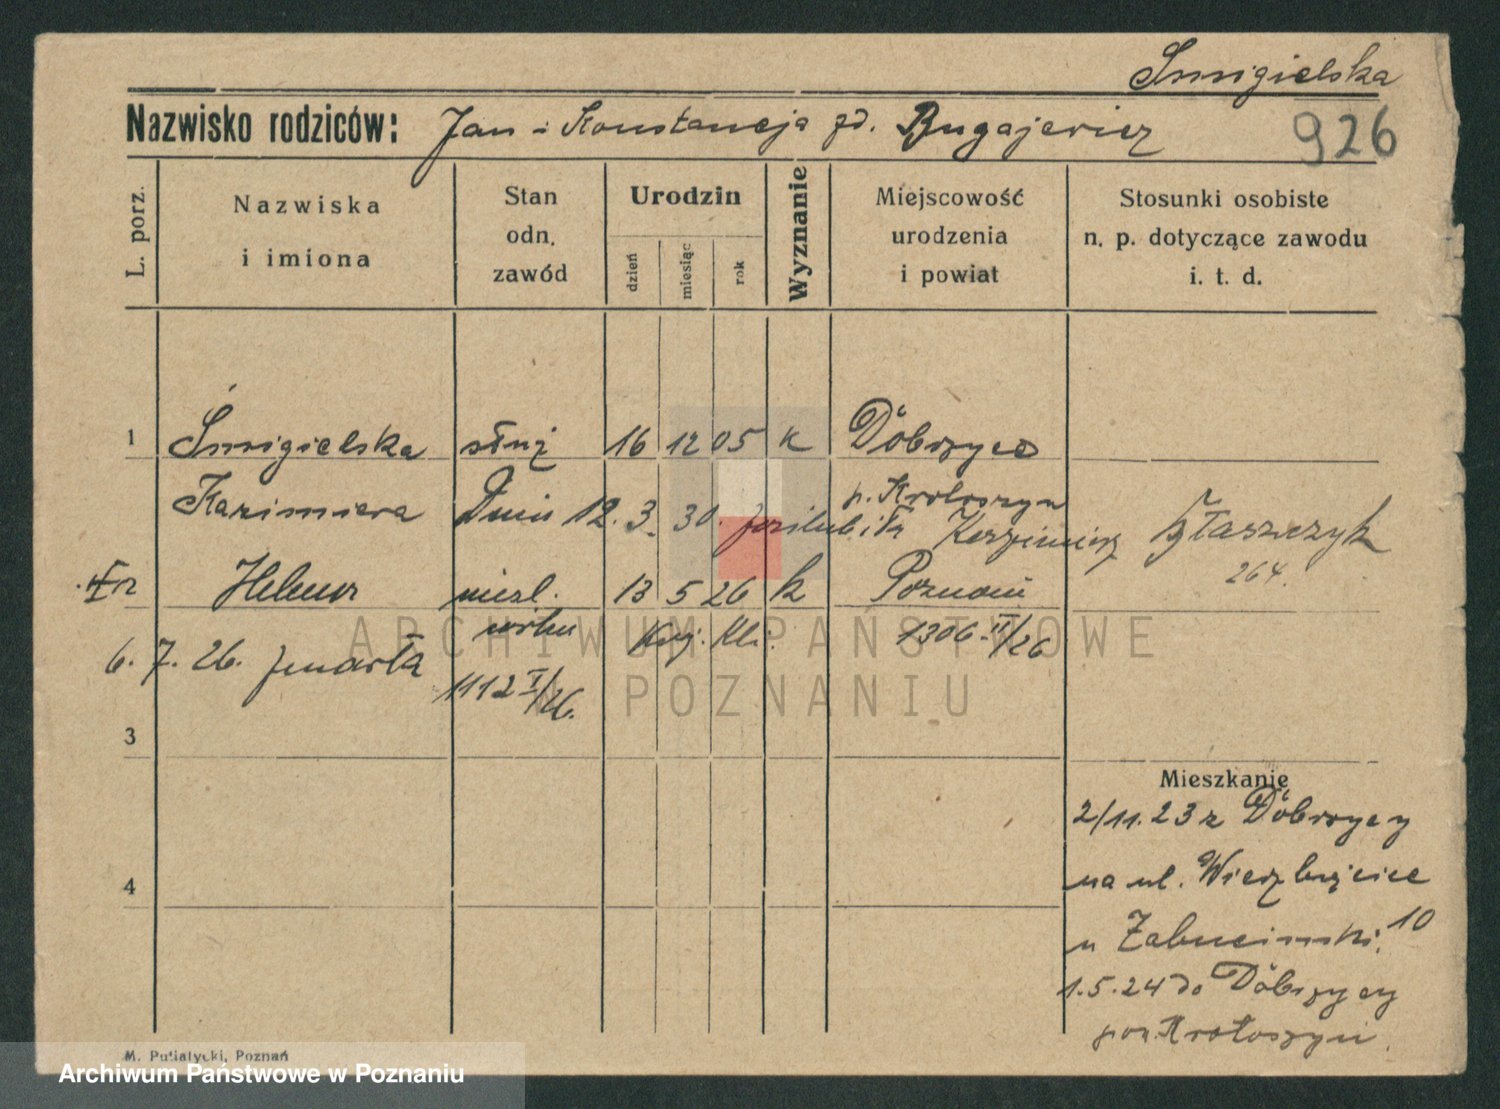 Smigielska
Nazwisko rodziców: Jan i Konstancja zd. Bugajewicz
926
L. porz.
Nazwiska
i imiona
Stan
odn.
zawód
Urodzin
dzień
miesiąc
rok
Wyznanie
Miejscowość
urodzenia
i powiat
Stosunki osobiste
n. p. dotyczące zawodu
i. t. d.
1 Śmigielska służ 16 12 05 k Dobrzyca
Kazimiera p. Krotoszyn
Dnia 12. 3. 30. poślubiła Kazimierz Błaszczyk
264.
Helena niezl. 13 5 26 k Poznań
córka 1306 II/26
6. 7. 26. zmarła
1112 I/26.
3
4
Mieszkanie
2/11.23 z Dobrzycy
na ul. Wierzbięcice 10
u
1.5.24 do Dobrzycy
pow. Krotoszyn.
M. Putiatycki, Poznań
ARCHIWUM PAŃSTWOWE
W POZNANIU
Archiwum Państwowe w Poznaniu